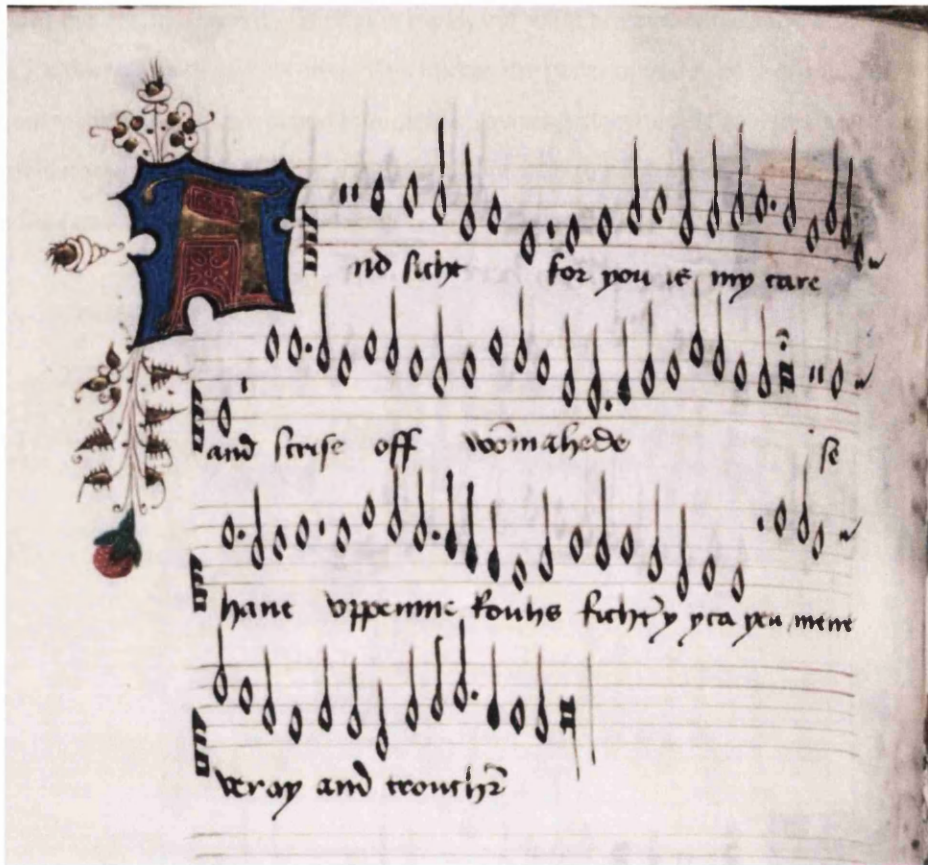 And siche for you is my care
and strise off wōmahede se
have vppenine kouhs y yca you mene
vray and trouthē